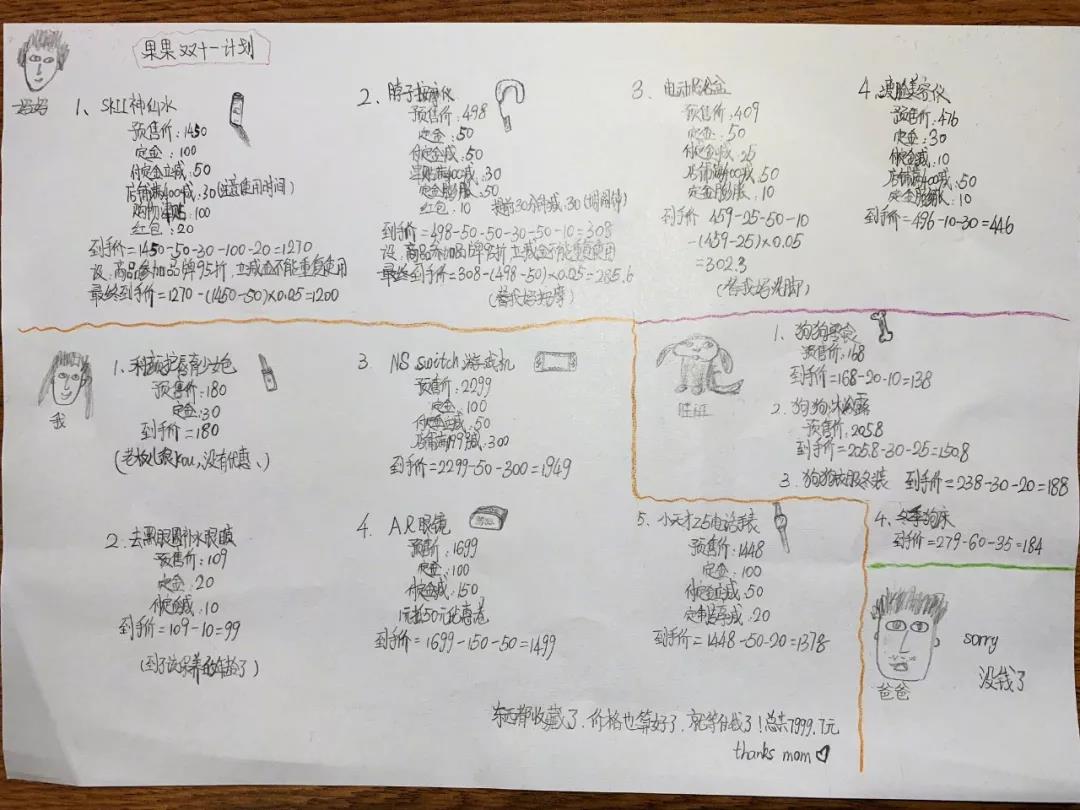 果果双十一计划
妈妈
1、SKII神仙水
预售价:1450
定金:100
付定金立减:50
店铺满400减:30(注意使用时间)
购物津贴:100
红包:20
到手价=1450-50-30-100-20=1270
设,商品参加品牌95折,立减金不能重复使用
最终到手价=1270-(1450-50)×0.05=1200
2.脖子按摩仪
预售价:498
定金:50
付定金减:50
津贴满400减:30
定金膨胀:50
红包:10
提前30分钟减:30(调闹钟)
到手价=498-50-50-30-50-10=308
设,商品参加品牌95折 立减金不能重复使用
最终到手价=308-(498-50)×0.05=285.6
(替我妈按摩)
3.电动
预售价:409
定金:50
付定金减:25
店铺满400减:50
定金膨胀:10
到手价 459-25-50-10
-(459-25)×0.05
=302.3
(替我妈洗脚)
4.瘦脸美容仪
预售价:476
定金:30
付定金减:10
店铺满400减:50
定金膨胀:10
到手价=496-10-30=446
我
1、护唇青少女包
预售价:180
定金:30
到手价=180
(老板儿很Kou,没有优惠、)
2.去黑眼圈补水眼膜
预售价:109
定金:20
付定金减:10
到手价=109-10=99
(到了该保养的年龄了)
3、NS switch游戏机
预售价:2299
定金:100
付定金立减:50
店铺满199减:300
到手价=2299-50-300=1949
4.AR眼镜
预售价:1699
定金:100
付定金减:150
1元抵50元优惠卷
到手价=1699-150-50=1499
5.小天才Z5电话手表
预售价:1448
定金:100
付定金立减:50
定制减:20
到手价=1448-50-20=1378
旺旺
1、狗狗零食
预售价:168
到手价=168-20-10=138
2.狗狗沐浴露
预售价:205.8
到手价=205.8-30-25=150.8
3.狗狗冬装 到手价=238-30-20=188
4.冬季狗床
到手价=279-60-35=184
爸爸
sorry
没钱了
东西都收藏了.价格也算好了.就等付钱了!总共7999.7元
thanks mom